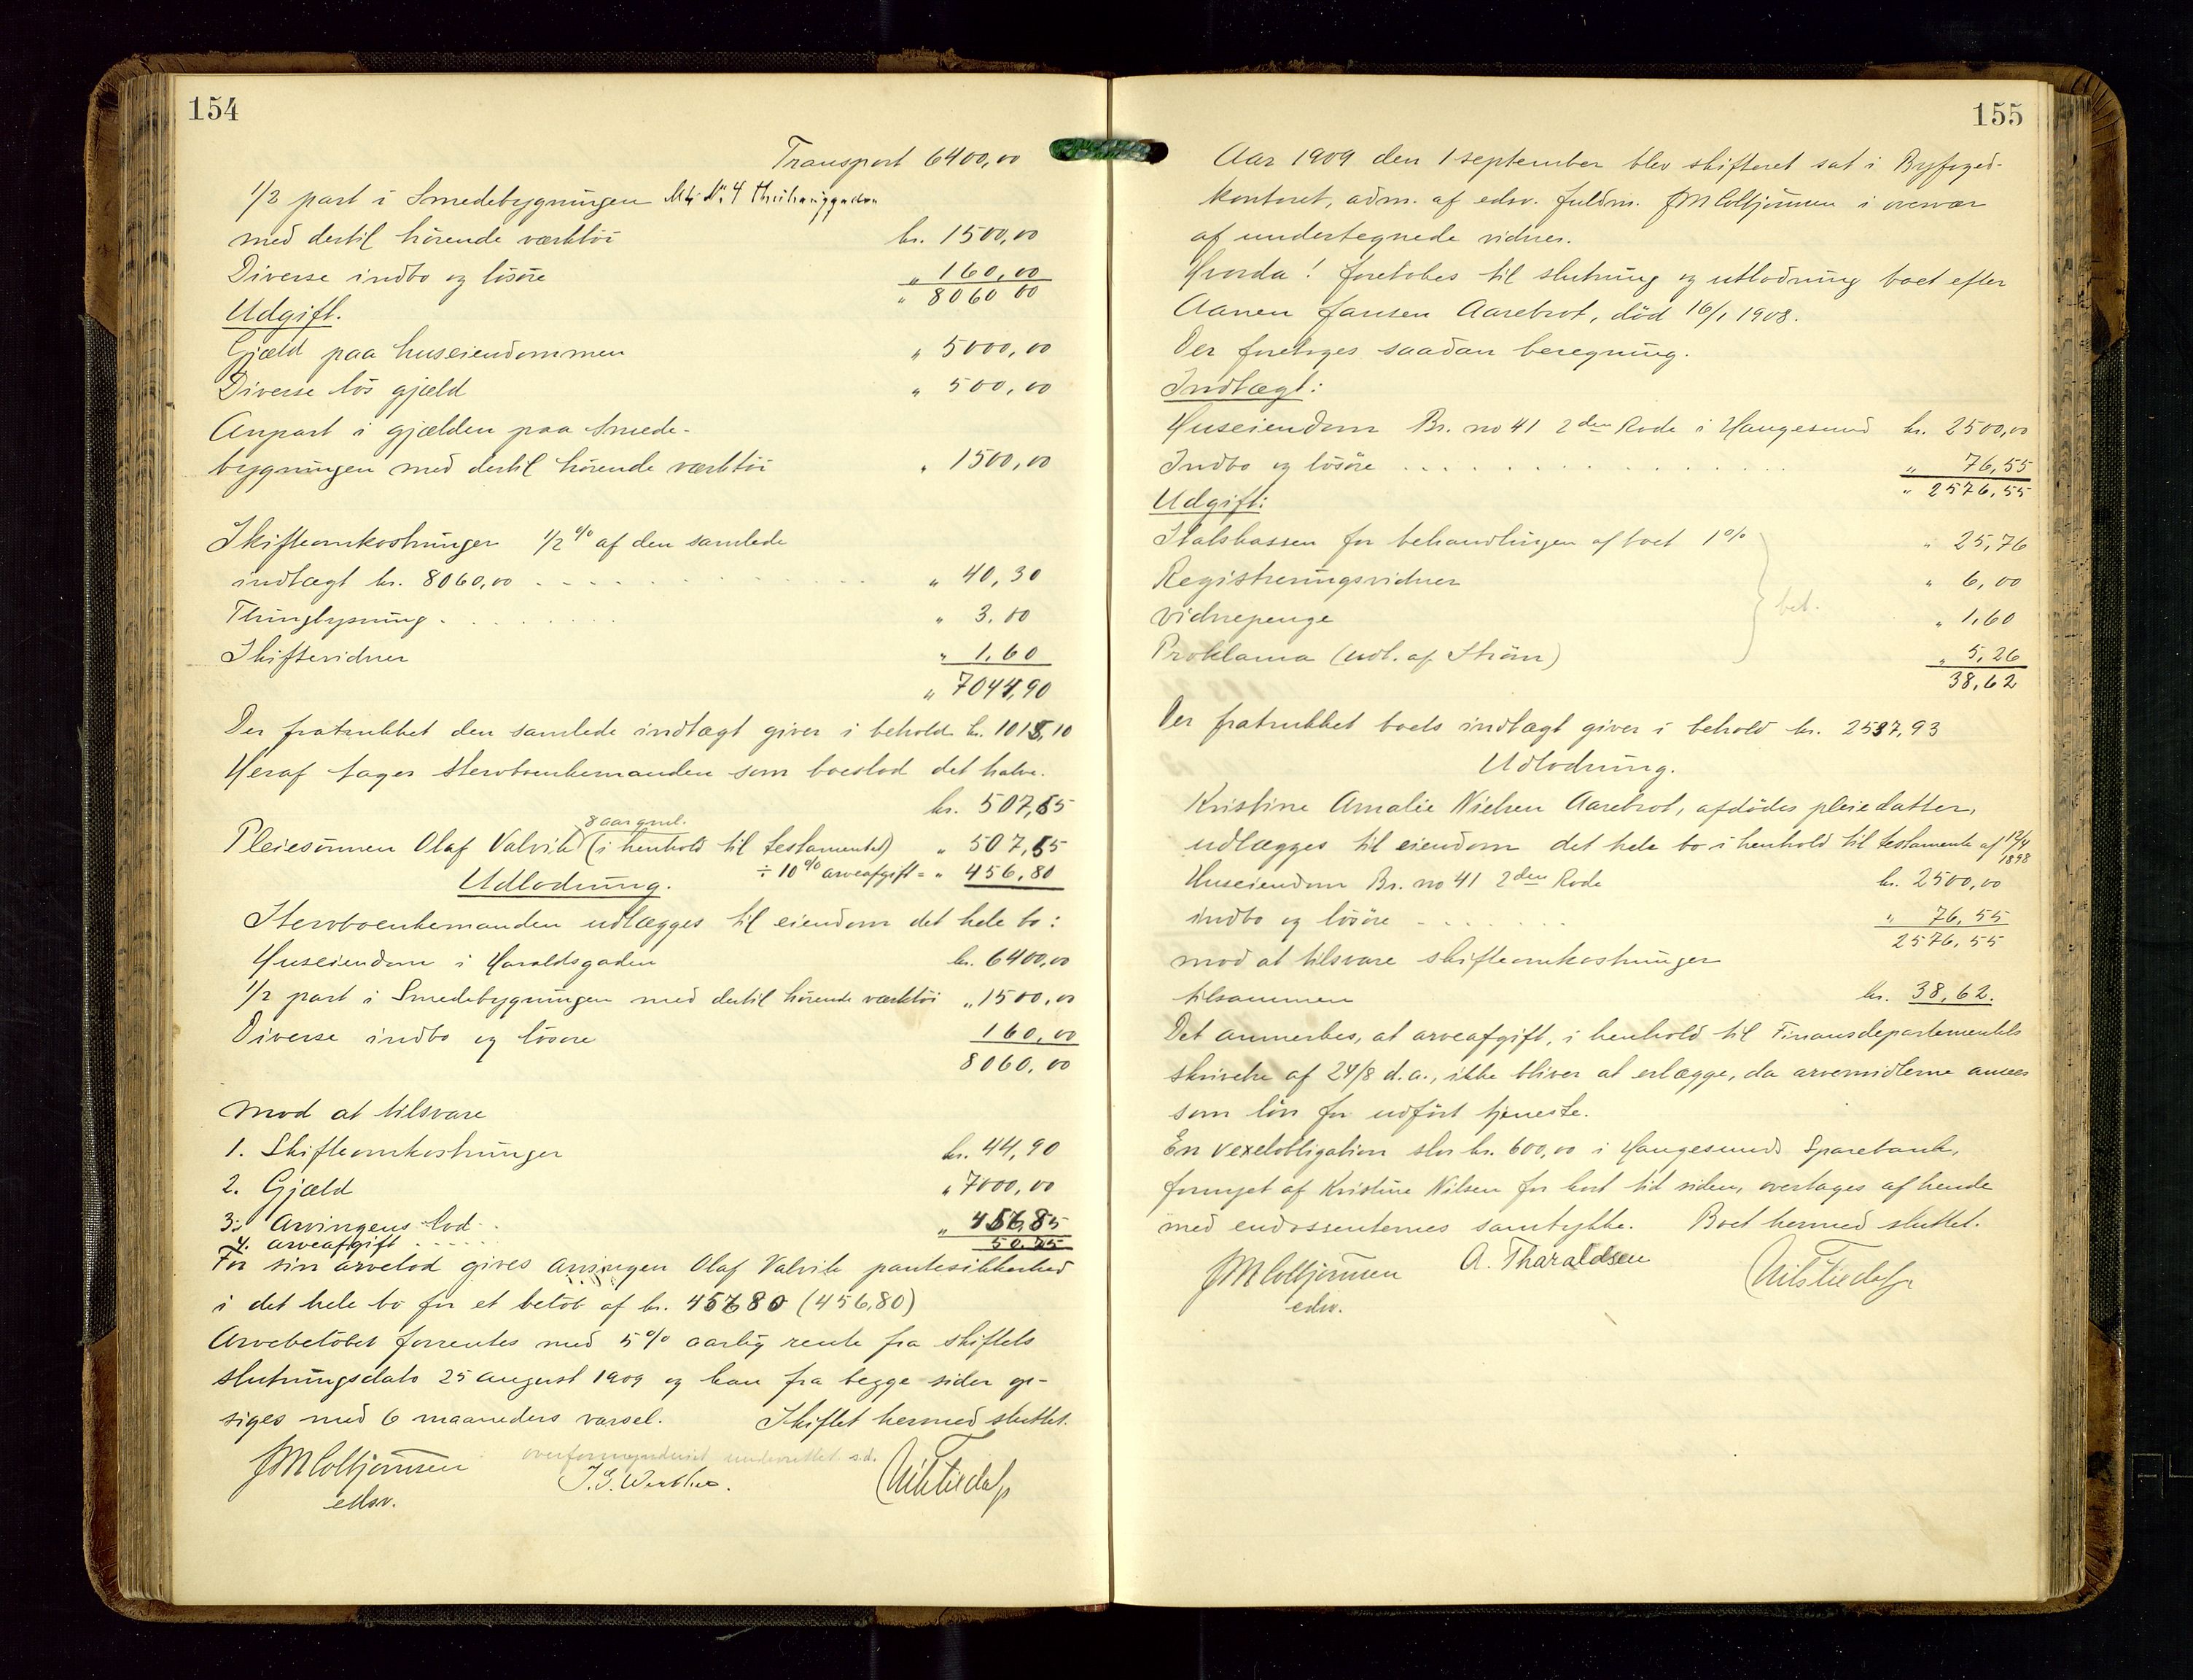 154
Transport 6400,00
1/2 part i Smedebygningen M. No. 4
med dertil hörende værktöi kr. 1500,00
Diverse indbo og lösöre " 160,00
" 8060 00
Udgift.
Gjæld paa huseiendommen " 5000,00
Diverse lös gjæld " 500,00
Anpart i gjælden paa Smede-
bygningen med dertil hörende værktöi " 1500,00
Skifteomkostninger 1/2 % af den samlede
indtægt kr. 8060,00 " 40,30
Thinglysning " 3,00
Skiftevidner " 1,60
" 7044,90
Der fratrukket den samlede indtægt giver i behold kr. 1015,10
Heraf tager stervboenkemanden som boeslod det halve.
kr. 507,55
8 aar gml.
Pleiesönnen Olaf Valvik (i henhold til testamentet) " 507,55
÷ 10 % arveafgift = " 456,80
Udlodning.
Stervboenkemanden udlægges til eiendom det hele bo:
Huseiendom i Haraldsgaden kr. 6400,00
1/2 part i Smedebygningen med dertil hörende værktöi " 1500,00
Diverse indbo og lösöre 160,00
8060,00
mod at tilsvare
1. Skifteomkostninger kr. 44,90
2. Gjæld " 7000,00
3. Arvingens lod " 456,85
4. arveafgift 50,75
For sin arvelod gives arvingen Olaf Valvik pantesikkerhed
i det hele bo for et belöb af kr. 456,80 (456,80)
Arvebelöbet forrentes med 5 % aarlig rente fra skiftets
slutningsdato 25 august 1909 og kan fra begge sider op-
siges med 6 maaneders varsel. Skiftet hermed sluttet.
JM Colbjörnsen overformynderiet underrettet s.d.
edsv.
155
Aar 1909 den 1 september blev skifteret sat i Byfoged-
kontoret, adm. af edsv. fuldm. JM Colbjörnsen i overvær
af undertegnede vidner.
Hvorda! foretokes til slutning og utlodning boet efter
Aanen Jansen Aarebrot, död 16/1 1908.
Der foretoges saadan beregning.
Indtægt:
Huseiendom Br. no 41 2den Rode i Haugesund kr. 2500,00
Indbo og lösöre " 76,55
" 2576,55
Udgift:
Statskassen for behandlingen af boet 1 % " 25,76
Registreringsvidner " 6,00
bet.
vidnepenge " 1,60
Proklama (udl. af Ström) " 5,26
38,62
Der fratrukket boets indtægt giver i behold kr. 2537,93
Udlodning.
Kristine Amalie Nielsen Aarebrot, afdödes pleiedatter,
udlægges til eiendom det hele bo i henhold til testamente af 12/4
1898
Huseiendom Br. no 41 2den Rode kr. 2500,00
indbo og lösöre " 76,55
2576,55
mod at tilsvare skifteomkostninger
tilsammen kr. 38,62.
Det anmerkes, at arveafgift, i henhold til Finansdepartementets
skrivelse af 24/8 d.a., ikke bliver at erlægge, da arvemidlerne ansees
som lön for udfört tjeneste.
En vexelobligation stor kr. 600,00 i Haugesunds Sparebank,
fornyet af Kristine Nilsen for kort tid siden, overtages af hende
med endossenternes samtykke. Boet hermed sluttet.
JM Colbjörnsen A. Tharaldsen
edsv.